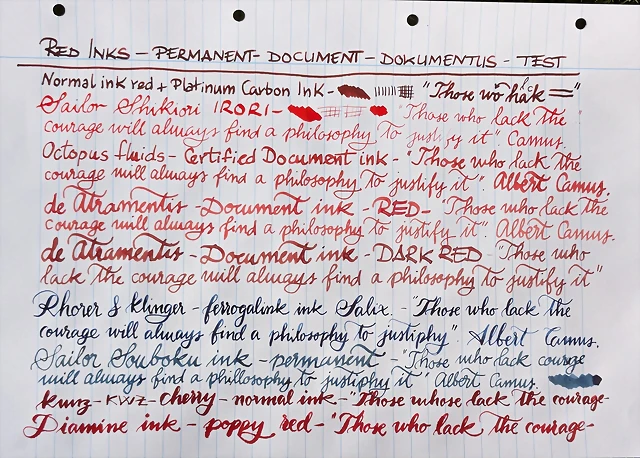 RED INKS - PERMANENT- DOCUMENT - DOKUMENTUS - TEST
Normal ink red + Platinum Carbon Ink - "Those
Sailor Shikiori IRORI - "Those who lack the
courage will always find a philosophy to justify it" Camus.
Octopus fluids - Certified Document ink - "Those who lack the
courage will always find a philosophy to justify it". Albert Camus.
de Atramentis - Document ink - RED - "Those who lack the
courage will always find a philosophy to justify it". Albert Camus.
de Atramentis - Document ink - DARK RED - "Those who
lack the courage will always find a philosophy to justify it"
Rhorer & Klinger - ferrogalink ink Salix. - "Those who lack the
courage will always find a philosophy to justiphy". Albert Camus.
Sailor Souboku ink - permanent - "Those who lack courage
will always find a phillosophy to justiphy it" Albert Camus.
kwz - KWZ - cherry - normal ink - "Those whose lack the courage-
Diamine ink - poppy red - "Those who lack the courage-